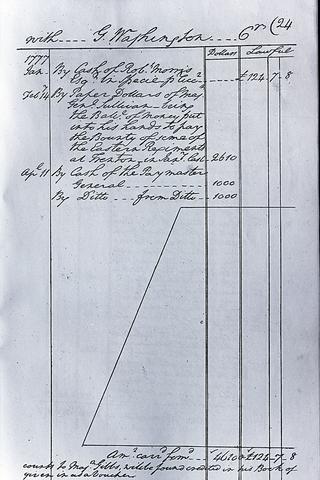 with G. Washington Cr (24
Dollars Lawful
1777
Jan. By Cash of Robt. Morris
Esqr. in Specie £124..7..8
Feby 14 By Paper Dollars of Majr
Genl. Sullivan being
the Balle. of Money put
into his hands to pay
the Bounty of some of
the Eastern Regiments
at Trenton in Jany. last 2610
Apl. 11 By Cash of the Paymaster
General 1000
By Ditto from Ditto 1000
Amt. carrd. forwd. 4610 £124..7..8
Majr. Gibbs, will be found credited in his Book of